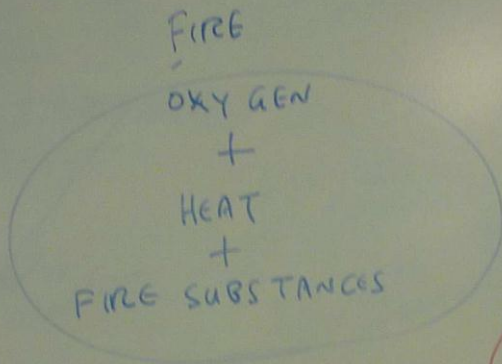 FIRE
OXYGEN
+
HEAT
+
FIRE SUBSTANCES